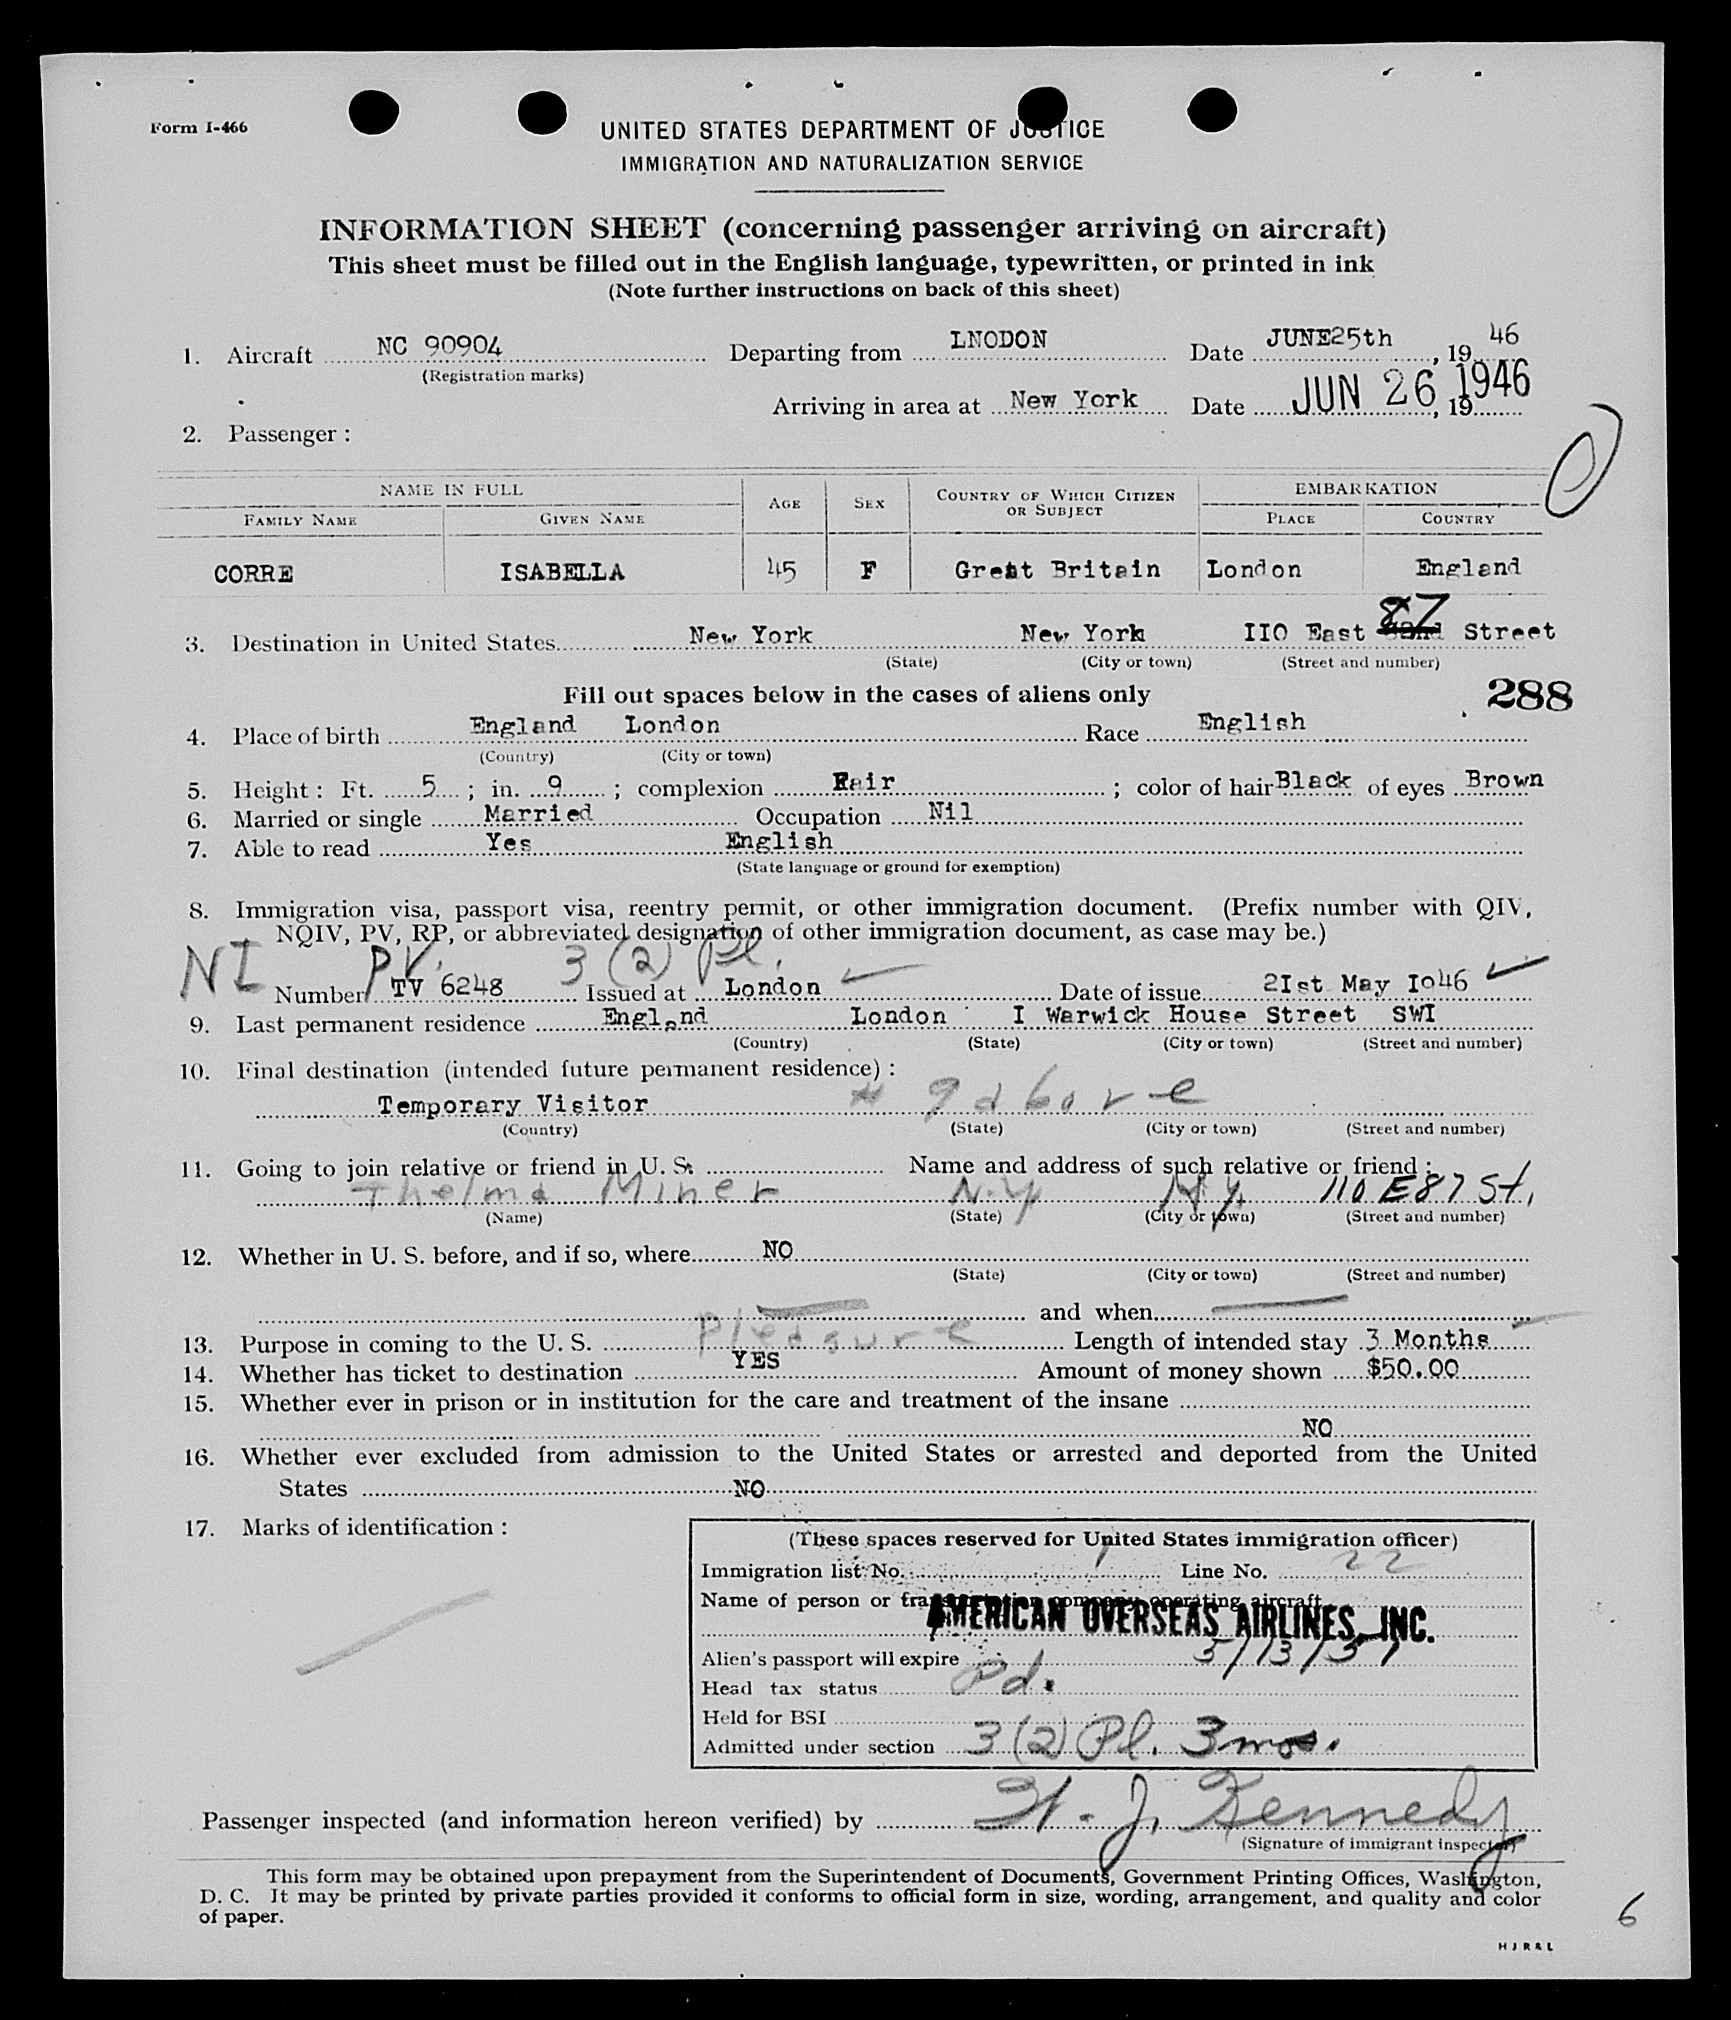 Form I-466
UNITED STATES DEPARTMENT OF JUSTICE
IMMIGRATION AND NATURALIZATION SERVICE
INFORMATION SHEET (concerning passenger arriving on aircraft)
This sheet must be filled out in the English language, typewritten, or printed in ink
(Note further instructions on back of this sheet)
1. Aircraft NC 90904 Departing from LNODON Date JUNE25th, 19 46
(Registration marks)
Arriving in area at New York Date JUN 26 1946, 19
2. Passenger :
NAME IN FULL AGE SEX COUNTRY OF WHICH CITIZEN OR SUBJECT EMBARKATION
FAMILY NAME GIVEN NAME PLACE COUNTRY
CORRE ISABELLA 45 F Great Britain London England
87
3. Destination in United States New York New York IIO East Street
(State) (City or town) (Street and number)
Fill out spaces below in the cases of aliens only 288
4. Place of birth England London Race English
(Country) (City or town)
5. Height : Ft. 5 ; in. 9 ; complexion Fair ; color of hair Black of eyes Brown
6. Married or single Married Occupation Nil
7. Able to read Yes English
(State language or ground for exemption)
8. Immigration visa, passport visa, reentry permit, or other immigration document. (Prefix number with QIV,
NQIV, PV, RP, or abbreviated designation of other immigration document, as case may be.)
NI PV. 3 (2) Pl.
Number TV 6248 Issued at London Date of issue 2Ist May I946
9. Last permanent residence England London I Warwick House Street SWI
(Country) (State) (City or town) (Street and number)
10. Final destination (intended future permanent residence) :
Temporary Visitor 9 above
(Country) (State) (City or town) (Street and number)
11. Going to join relative or friend in U. S. Name and address of such relative or friend :
Thelma Miner N.Y. N.Y. 110 E 87 St.
(Name) (State) (City or town) (Street and number)
12. Whether in U. S. before, and if so, where NO
(State) (City or town) (Street and number)
and when
13. Purpose in coming to the U. S. Pleasure Length of intended stay 3 Months
14. Whether has ticket to destination YES Amount of money shown $50.00
15. Whether ever in prison or in institution for the care and treatment of the insane
NO
16. Whether ever excluded from admission to the United States or arrested and deported from the United
States NO
17. Marks of identification :
(These spaces reserved for United States immigration officer)
Immigration list No. 1 Line No. 22
Name of person or transportation company operating aircraft
AMERICAN OVERSEAS AIRLINES, INC.
Alien's passport will expire 5/13/51
Head tax status Pd.
Held for BSI
Admitted under section 3 (2) Pl. 3 mos.
Passenger inspected (and information hereon verified) by H. J. Kennedy
(Signature of immigrant inspector)
This form may be obtained upon prepayment from the Superintendent of Documents, Government Printing Offices, Washington,
D. C. It may be printed by private parties provided it conforms to official form in size, wording, arrangement, and quality and color
of paper.
6
H J R & L